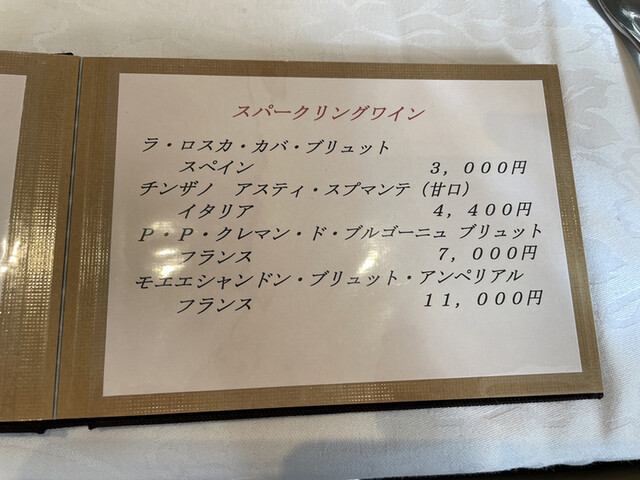 スパークリングワイン
ラ・ロスカ・カバ・ブリュット
スペイン　３，０００円
チンザノ　アスティ・スプマンテ（甘口）
イタリア　４，４００円
Ｐ・Ｐ・クレマン・ド・ブルゴーニュ ブリュット
フランス　７，０００円
モエエシャンドン・ブリュット・アンペリアル
フランス　１１，０００円